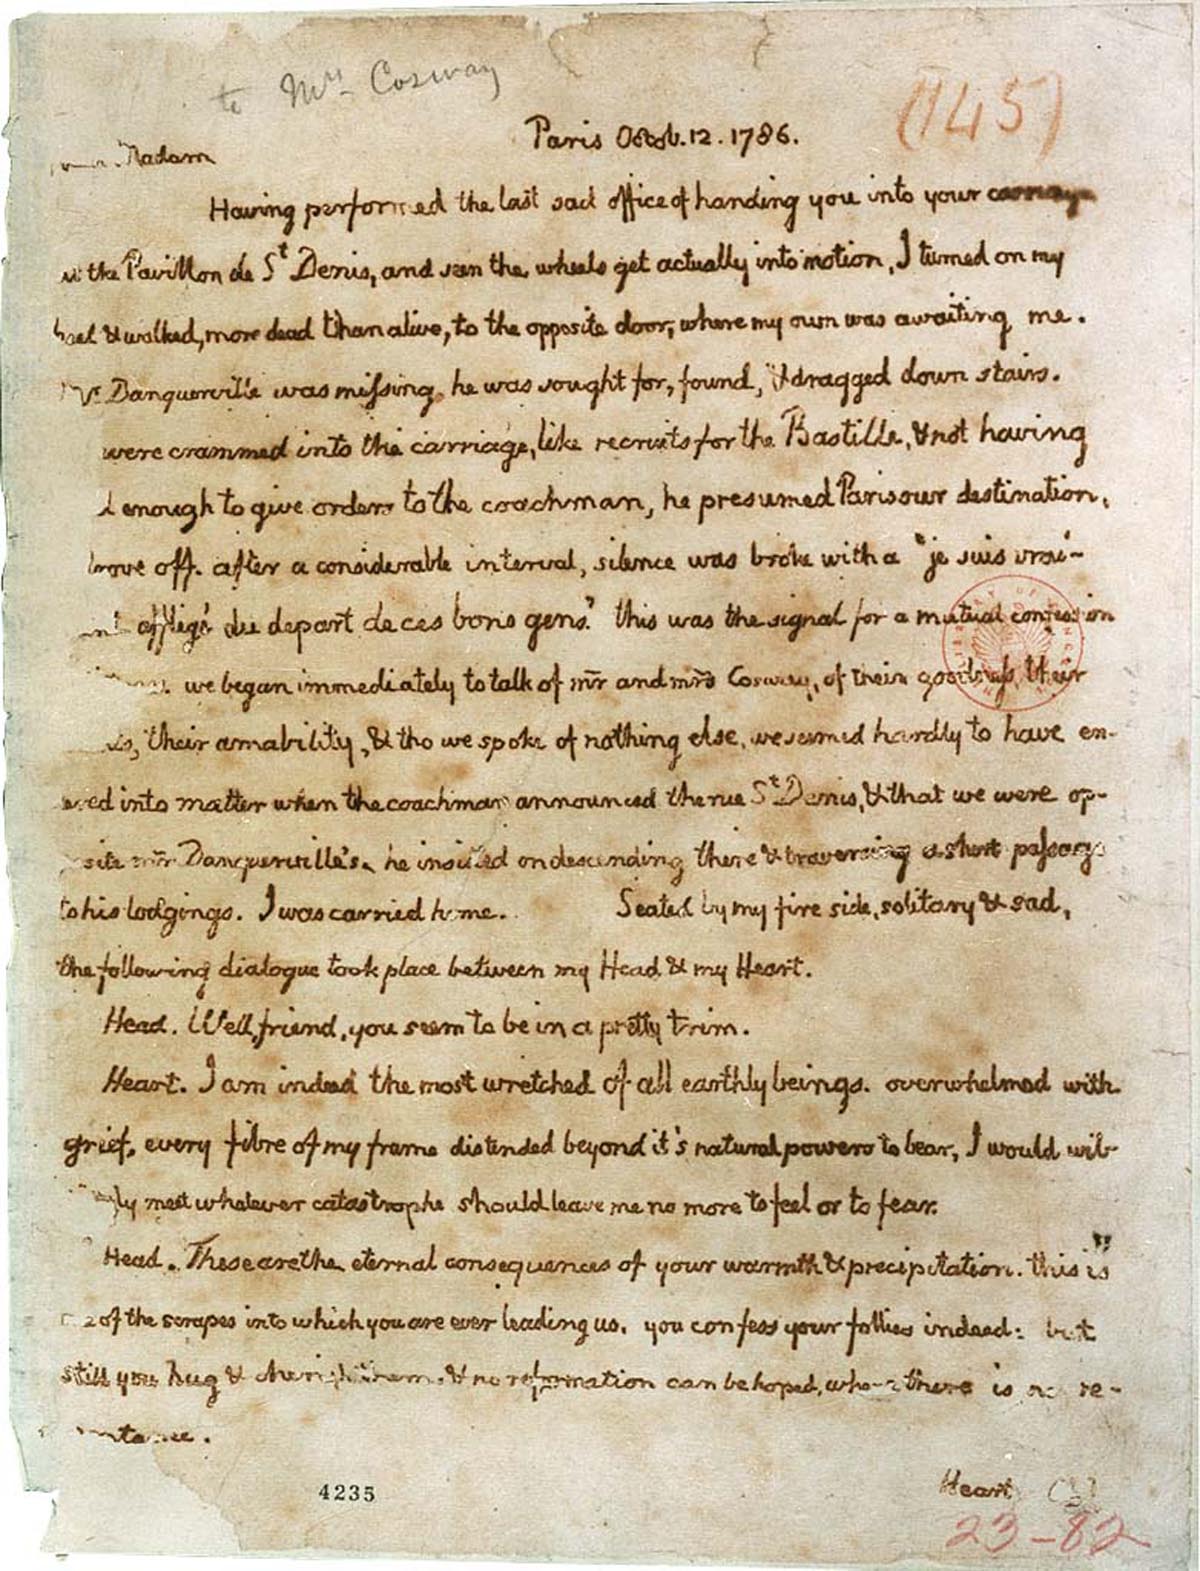 to Mrs Cosway
(145)
Paris Octob. 12. 1786.
Madam
Having performed the last sad office of handing you into your carriage
at the Pavillon de St Denis, and seen the wheels get actually into motion, I turned on my
heel & walked, more dead than alive, to the opposite door, where my own was awaiting me.
Mr Danquerville was missing. he was sought for, found, & dragged down stairs.
were crammed into the carriage, like recruits for the Bastille, & not having
enough to give orders to the coachman, he presumed Paris our destination,
drove off. after a considerable interval, silence was broke with a "je suis vrai-
affligé du depart de ces bons gens." this was the signal for a mutual confession
we began immediately to talk of mr and mrs Cosway, of their goodness, their
their amability, & tho we spoke of nothing else, we seemed hardly to have en-
ered into matter when the coachman announced the rue St Denis, & that we were op-
posite mr Danquerville's. he insisted on descending there & traversing a short passage
to his lodgings. I was carried home. Seated by my fire side, solitary & sad,
the following dialogue took place between my Head & my Heart.
Head. Well, friend, you seem to be in a pretty trim.
Heart. I am indeed the most wretched of all earthly beings. overwhelmed with
grief, every fibre of my frame distended beyond it's natural powers to bear, I would wil-
ly meet whatever catastrophe should leave me no more to feel or to fear.
Head. These are the eternal consequences of your warmth & precipitation. this is
of the scrapes into which you are ever leading us. you confess your follies indeed: but
still you hug & cherish them, & no reformation can be hoped, where there is no re-
pentance.
Heart
4235
23-82